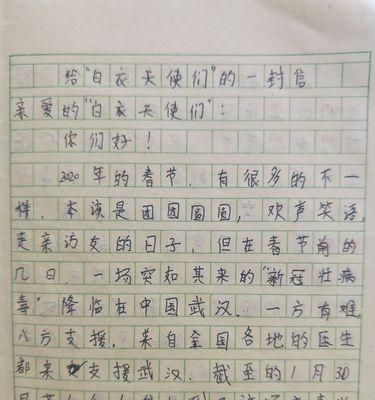 给“白衣天使们”的一封信
亲爱的“白衣天使们”:
你们好！
2020年的春节，有很多的不一
样。本该是团团圆圆，欢声笑语，
走亲访友的日子，但在春节前的
几日，一场突如其来的“新冠壮病
毒”降临在中国武汉。一方有难，
八方支援，来自全国各地的医生
都来支援武汉。截至的1月30